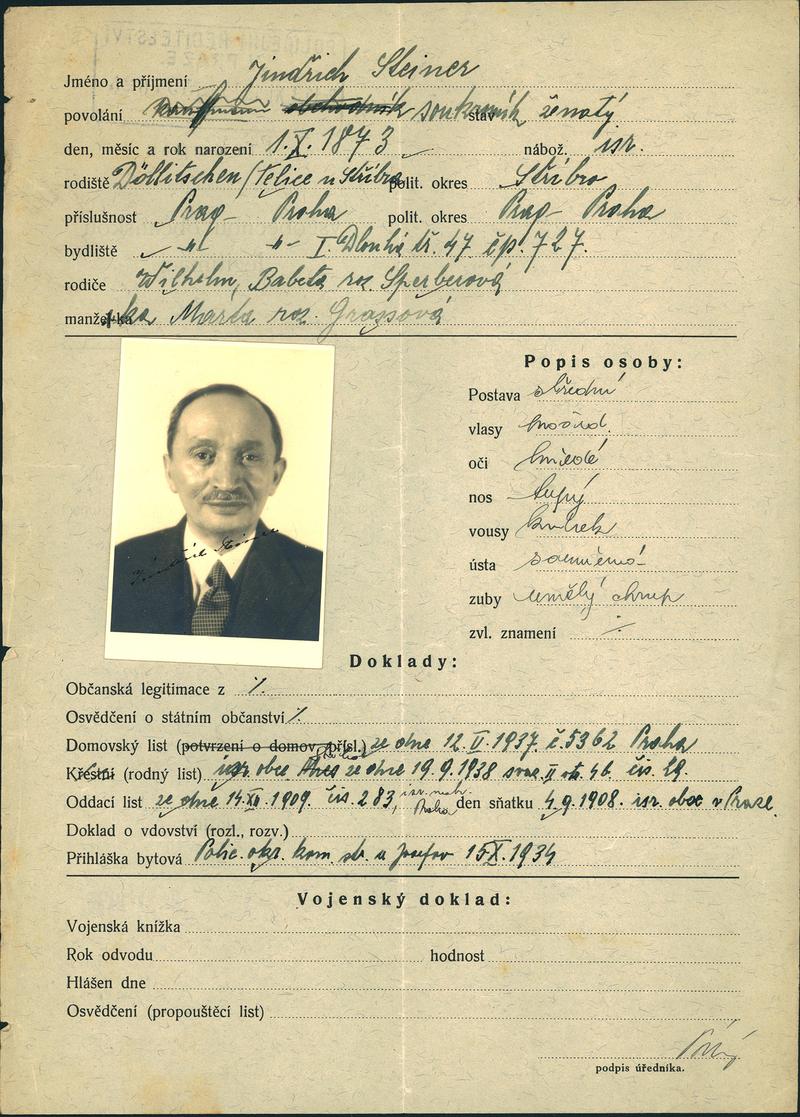 Jméno a příjmení Jindřich Steiner
povolání obchodník soukromník stav ženatý
den, měsíc a rok narození 1.X.1873 nábož. isr.
rodiště Döllitschen/Telice u Stříbra polit. okres Stříbro
příslušnost Prag- Praha polit. okres Prag- Praha
bydliště -"- -"- I. Dlouhá tř. 47 čp. 727.
rodiče Wilhelm, Babeta roz. Sperberová
manželka Marta roz. Grassová
Popis osoby:
Postava střední
vlasy
oči hnědé
nos tupý
vousy knírek
ústa souměrná
zuby umělý chrup
zvl. znamení ./.
Doklady:
Občanská legitimace z ./.
Osvědčení o státním občanství ./.
Domovský list (potvrzení o domov. přísl.) ze dne 12.II.1937. č.5362 Praha
Křestní (rodný list) isr. obec ze dne 19.9.1938 svaz. II str. 46. čís. 29.
Oddací list ze dne 14.XII.1909. čís. 283, isr. mat. Praha den sňatku 4.9.1908. isr. obec v Praze.
Doklad o vdovství (rozl., rozv.)
Přihláška bytová Polic. okr. kom. Josefov 15.X.1934
Vojenský doklad:
Vojenská knížka
Rok odvodu hodnost
Hlášen dne
Osvědčení (propouštěcí list)
podpis úředníka.